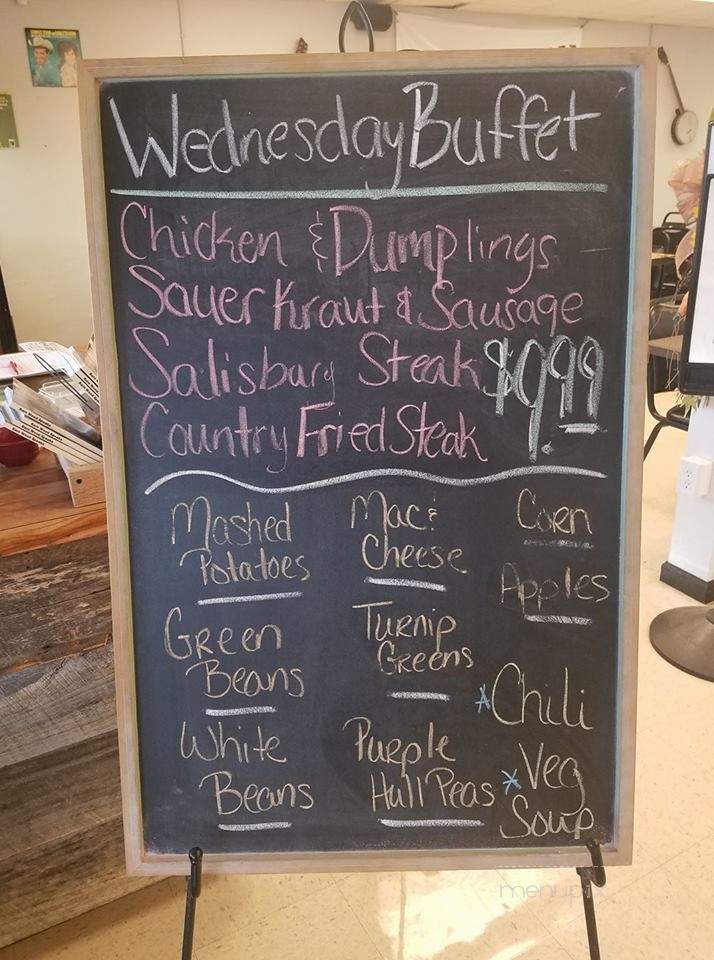 Wednesday Buffet
Chicken & Dumplings
Sauer Kraut & Sausage
Salisbury Steak $9.99
Country Fried Steak
Mashed Potatoes
Mac & Cheese
Corn
Apples
Green Beans
Turnip Greens
*Chili
White Beans
Purple Hull Peas
*Veg Soup
menupix